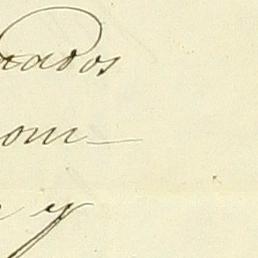 ados
om
y